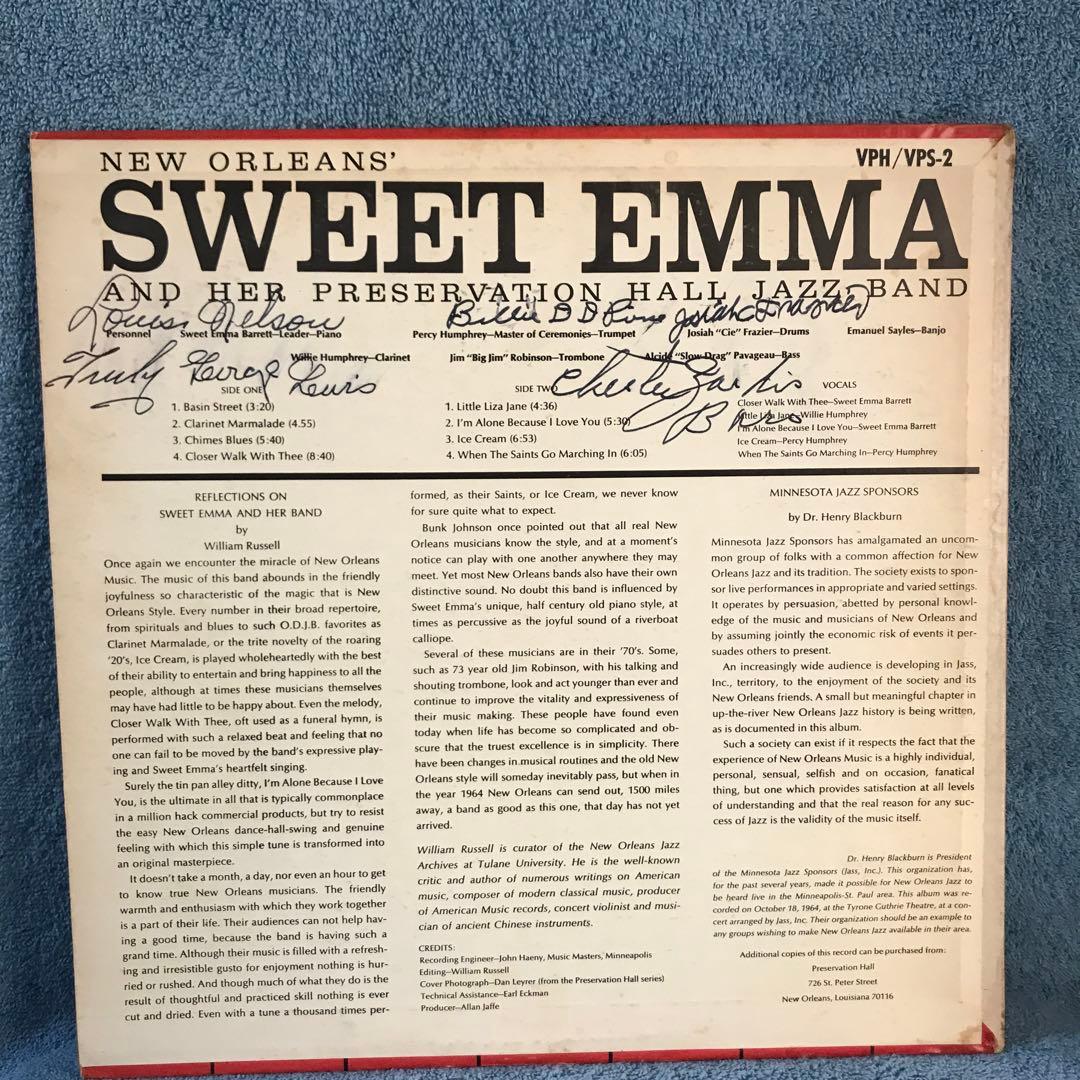 NEW ORLEANS'
VPH/VPS-2
SWEET EMMA
AND HER PRESERVATION HALL JAZZ BAND
Louis Nelson
Billie D D Pierce Josiah C Frazier
Personnel Sweet Emma Barrett—Leader—Piano Percy Humphrey—Master of Ceremonies—Trumpet Josiah "Cie" Frazier—Drums Emanuel Sayles—Banjo
Willie Humphrey—Clarinet Jim "Big Jim" Robinson—Trombone Alcide "Slow Drag" Pavageau—Bass
Truly George Lewis
Chester
SIDE ONE
1. Basin Street (3:20)
2. Clarinet Marmalade (4.55)
3. Chimes Blues (5:40)
4. Closer Walk With Thee (8:40)
SIDE TWO
1. Little Liza Jane (4:36)
2. I'm Alone Because I Love You (5:30)
3. Ice Cream (6:53)
4. When The Saints Go Marching In (6:05)
VOCALS
Closer Walk With Thee—Sweet Emma Barrett
Little Liza Jane—Willie Humphrey
I'm Alone Because I Love You—Sweet Emma Barrett
Ice Cream—Percy Humphrey
When The Saints Go Marching In—Percy Humphrey
REFLECTIONS ON
SWEET EMMA AND HER BAND
by
William Russell
Once again we encounter the miracle of New Orleans
Music. The music of this band abounds in the friendly
joyfulness so characteristic of the magic that is New
Orleans Style. Every number in their broad repertoire,
from spirituals and blues to such O.D.J.B. favorites as
Clarinet Marmalade, or the trite novelty of the roaring
'20's, Ice Cream, is played wholeheartedly with the best
of their ability to entertain and bring happiness to all the
people, although at times these musicians themselves
may have had little to be happy about. Even the melody,
Closer Walk With Thee, oft used as a funeral hymn, is
performed with such a relaxed beat and feeling that no
one can fail to be moved by the band's expressive play-
ing and Sweet Emma's heartfelt singing.
Surely the tin pan alley ditty, I'm Alone Because I Love
You, is the ultimate in all that is typically commonplace
in a million hack commercial products, but try to resist
the easy New Orleans dance-hall-swing and genuine
feeling with which this simple tune is transformed into
an original masterpiece.
It doesn't take a month, a day, nor even an hour to get
to know true New Orleans musicians. The friendly
warmth and enthusiasm with which they work together
is a part of their life. Their audiences can not help hav-
ing a good time, because the band is having such a
grand time. Although their music is filled with a refresh-
ing and irresistible gusto for enjoyment nothing is hur-
ried or rushed. And though much of what they do is the
result of thoughtful and practiced skill nothing is ever
cut and dried. Even with a tune a thousand times per-
formed, as their Saints, or Ice Cream, we never know
for sure quite what to expect.
Bunk Johnson once pointed out that all real New
Orleans musicians know the style, and at a moment's
notice can play with one another anywhere they may
meet. Yet most New Orleans bands also have their own
distinctive sound. No doubt this band is influenced by
Sweet Emma's unique, half century old piano style, at
times as percussive as the joyful sound of a riverboat
calliope.
Several of these musicians are in their '70's. Some,
such as 73 year old Jim Robinson, with his talking and
shouting trombone, look and act younger than ever and
continue to improve the vitality and expressiveness of
their music making. These people have found even
today when life has become so complicated and ob-
scure that the truest excellence is in simplicity. There
have been changes in musical routines and the old New
Orleans style will someday inevitably pass, but when in
the year 1964 New Orleans can send out, 1500 miles
away, a band as good as this one, that day has not yet
arrived.
William Russell is curator of the New Orleans Jazz
Archives at Tulane University. He is the well-known
critic and author of numerous writings on American
music, composer of modern classical music, producer
of American Music records, concert violinist and musi-
cian of ancient Chinese instruments.
CREDITS:
Recording Engineer—John Haeny, Music Masters, Minneapolis
Editing—William Russell
Cover Photograph—Dan Leyrer (from the Preservation Hall series)
Technical Assistance—Earl Eckman
Producer—Allan Jaffe
MINNESOTA JAZZ SPONSORS
by Dr. Henry Blackburn
Minnesota Jazz Sponsors has amalgamated an uncom-
mon group of folks with a common affection for New
Orleans Jazz and its tradition. The society exists to spon-
sor live performances in appropriate and varied settings.
It operates by persuasion, abetted by personal knowl-
edge of the music and musicians of New Orleans and
by assuming jointly the economic risk of events it per-
suades others to present.
An increasingly wide audience is developing in Jass,
Inc., territory, to the enjoyment of the society and its
New Orleans friends. A small but meaningful chapter in
up-the-river New Orleans Jazz history is being written,
as is documented in this album.
Such a society can exist if it respects the fact that the
experience of New Orleans Music is a highly individual,
personal, sensual, selfish and on occasion, fanatical
thing, but one which provides satisfaction at all levels
of understanding and that the real reason for any suc-
cess of Jazz is the validity of the music itself.
Dr. Henry Blackburn is President
of the Minnesota Jazz Sponsors (Jass, Inc.). This organization has,
for the past several years, made it possible for New Orleans Jazz to
be heard live in the Minneapolis-St. Paul area. This album was re-
corded on October 18, 1964, at the Tyrone Guthrie Theatre, at a con-
cert arranged by Jass, Inc. Their organization should be an example to
any groups wishing to make New Orleans Jazz available in their area.
Additional copies of this record can be purchased from:
Preservation Hall
726 St. Peter Street
New Orleans, Louisiana 70116